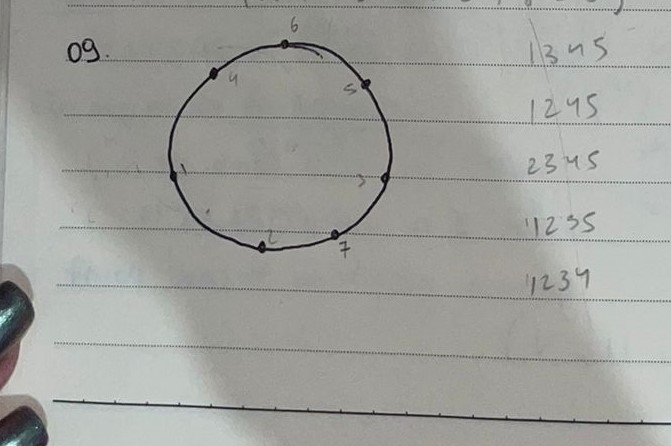 09.
6
4
5
1
3
2
7
1345
1245
2345
1235
1234